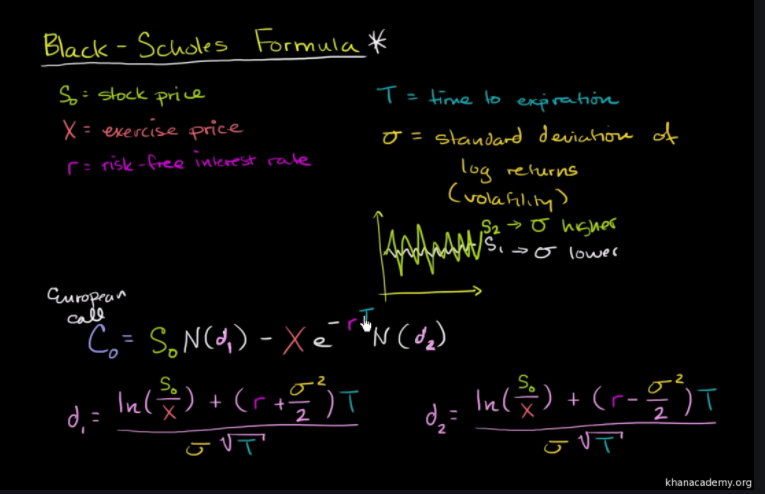 Black-Scholes Formula *
S₀ = stock price
X = exercise price
r = risk-free interest rate
T = time to expiration
σ = standard deviation of
log returns
(volatility)
S₂ → σ higher
S₁ → σ lower
European
call
C₀ = S₀ N(d₁) - X e^(-rT) N(d₂)
d₁ = (ln(S₀/X) + (r + σ²/2) T) / (σ √T)
d₂ = (ln(S₀/X) + (r - σ²/2) T) / (σ √T)
khanacademy.org